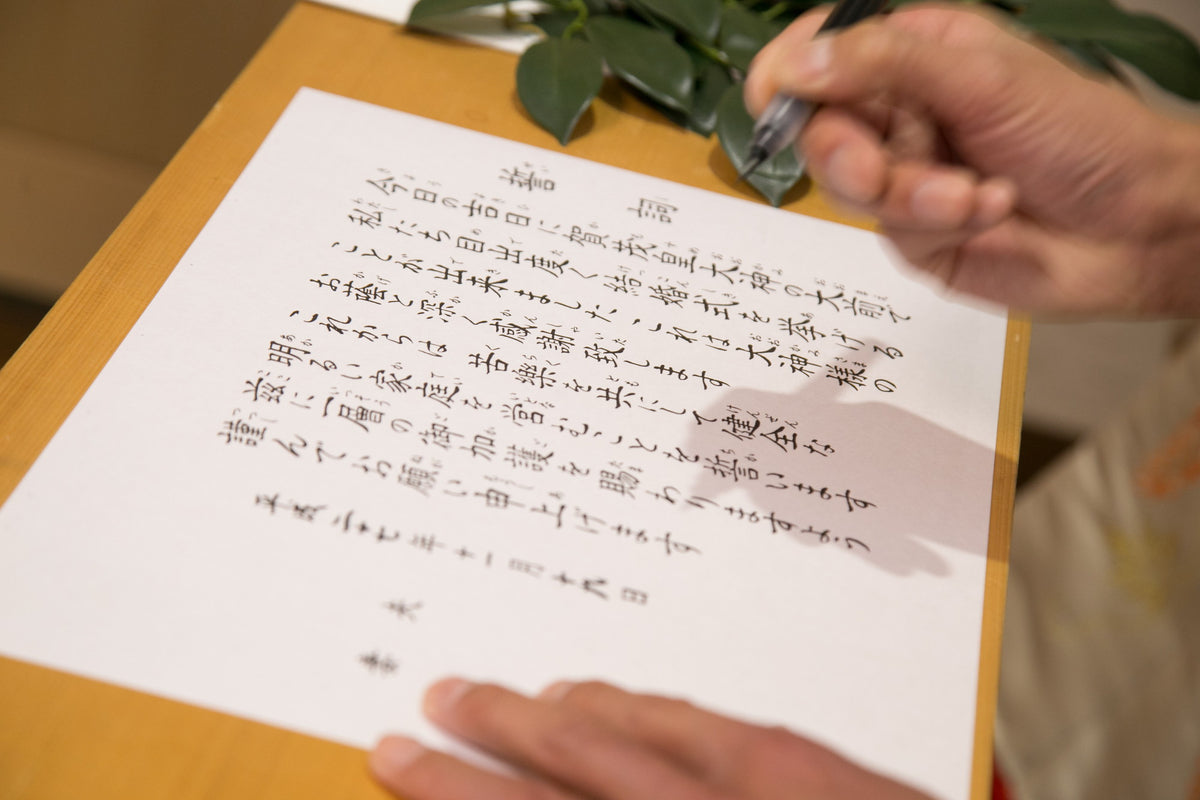 誓詞
今日の吉日に賀茂皇大神の大前で
私たち目出度く結婚式を挙げる
ことが出来ました これは大神様の
お蔭と深く感謝致します
これからは 苦樂を共にして健全な
明るい家庭を営むことを誓います
茲に一層の御加護を賜わりますよう
謹んでお願い申上げます
平成二十七年十一月十九日
夫
妻